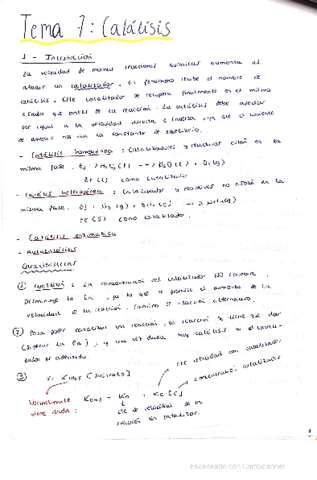 Tema 7: Catálisis
1 - Introducción
La velocidad de muchas reacciones químicas aumenta al
añadir un catalizador. El fenómeno recibe el nombre de
catálisis. Este catalizador se recupera finalmente en el mismo
estado que antes de la reacción. La catálisis debe afectar
por igual a la velocidad directa e inversa, ya que el cociente
de ambas nos da la constante de equilibrio.
- Catálisis homogénea: Catalizadores y reactivos están en la
misma fase.
como catalizador
- Catálisis heterogénea: Catalizador y reactivos no están en la
misma fase.
como catalizador.
- Catálisis enzimática
- Autocatálisis
Características
① : La concentración del catalizador NO cambia.
Disminuye la Ea, por lo que se permite el aumento de la
velocidad de la reacción. Camino de reacción alternativo.
② Para poder catalizar una reacción, la reacción se tiene que dar
(superar la Ea), y una vez dada, hay catálisis
③
cte velocidad con catalizador
concentración catalizador
Normalmente
viene dada:
cte de velocidad de la
reacción sin catalizar.
Escaneado con CamScanner